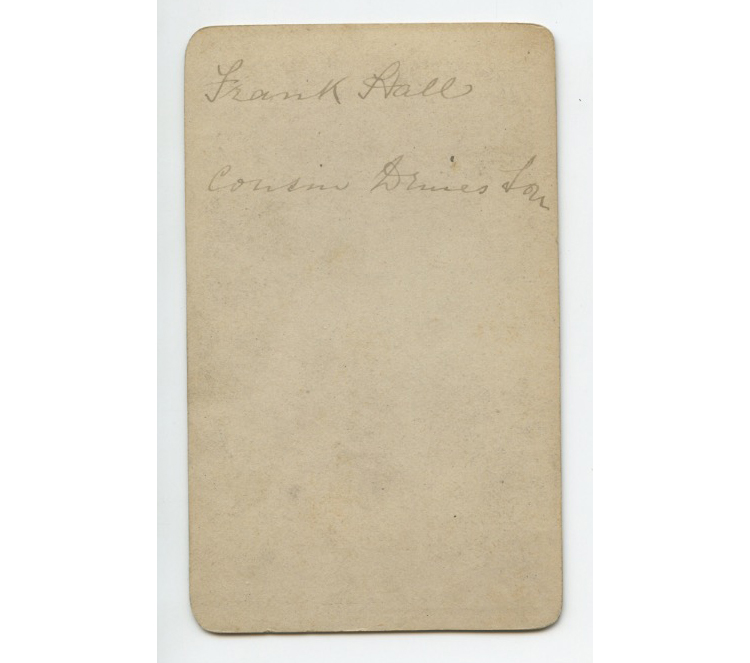 Frank Hall
Cousin Son